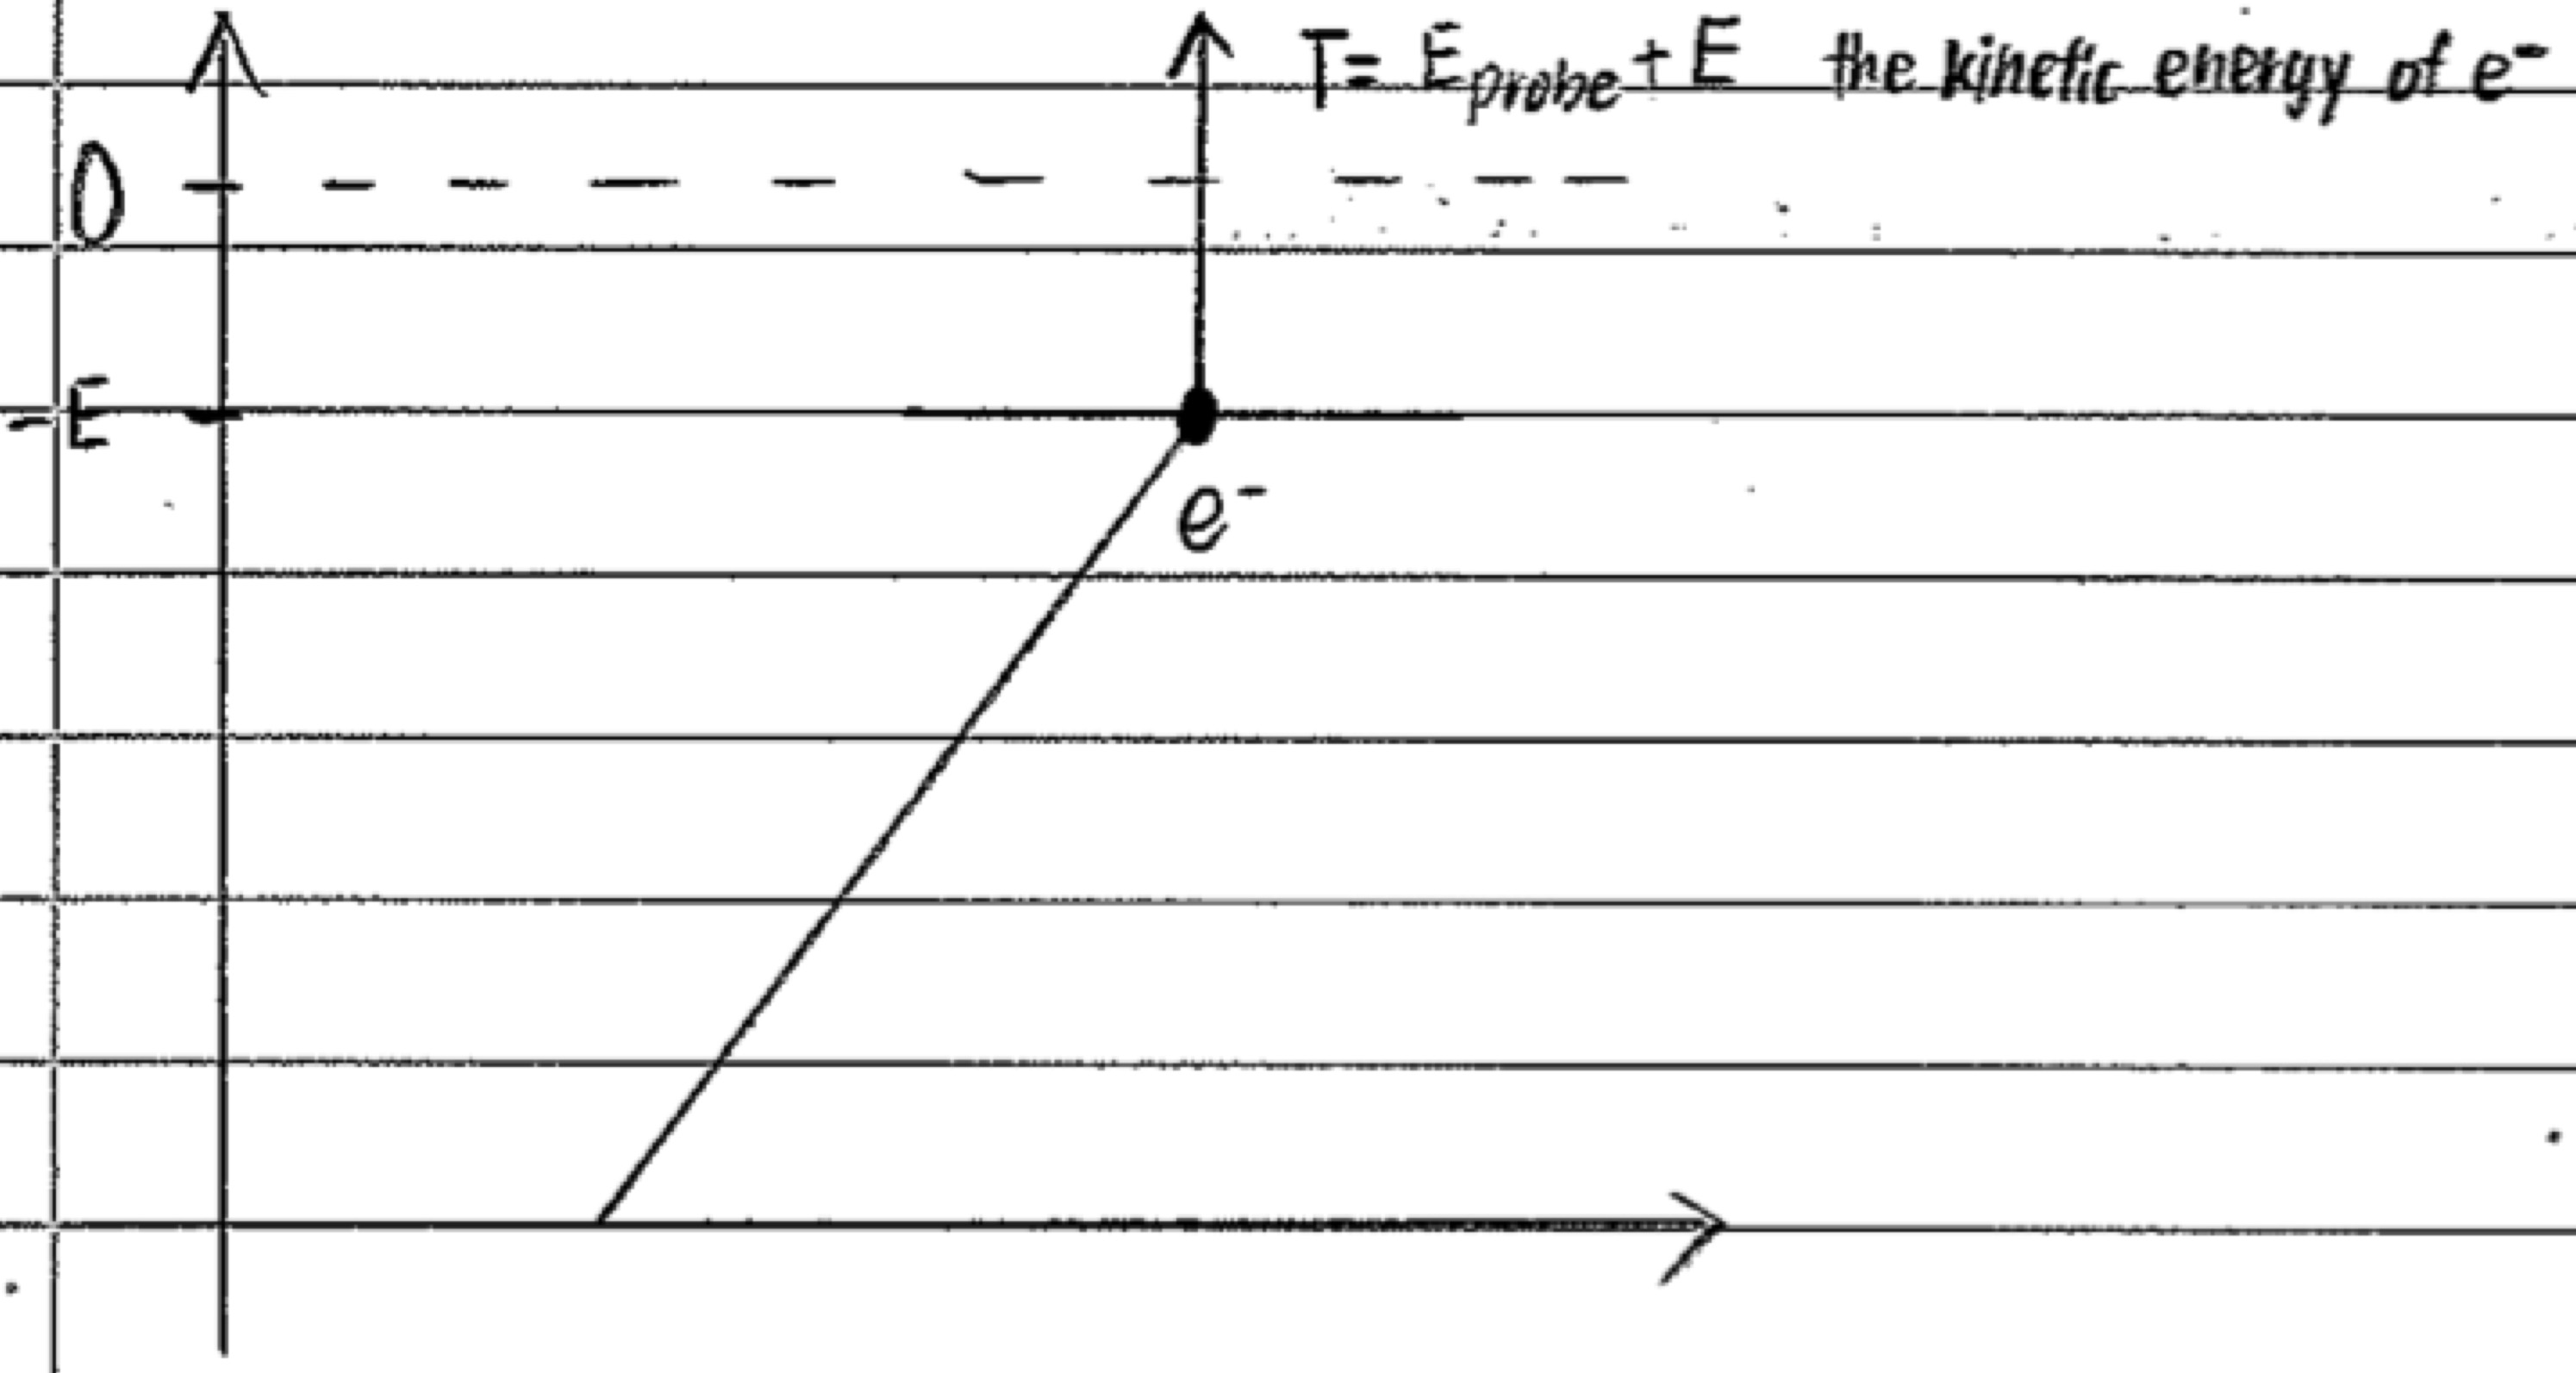 T = E_probe + E the kinetic energy of e⁻
0
-E
e⁻